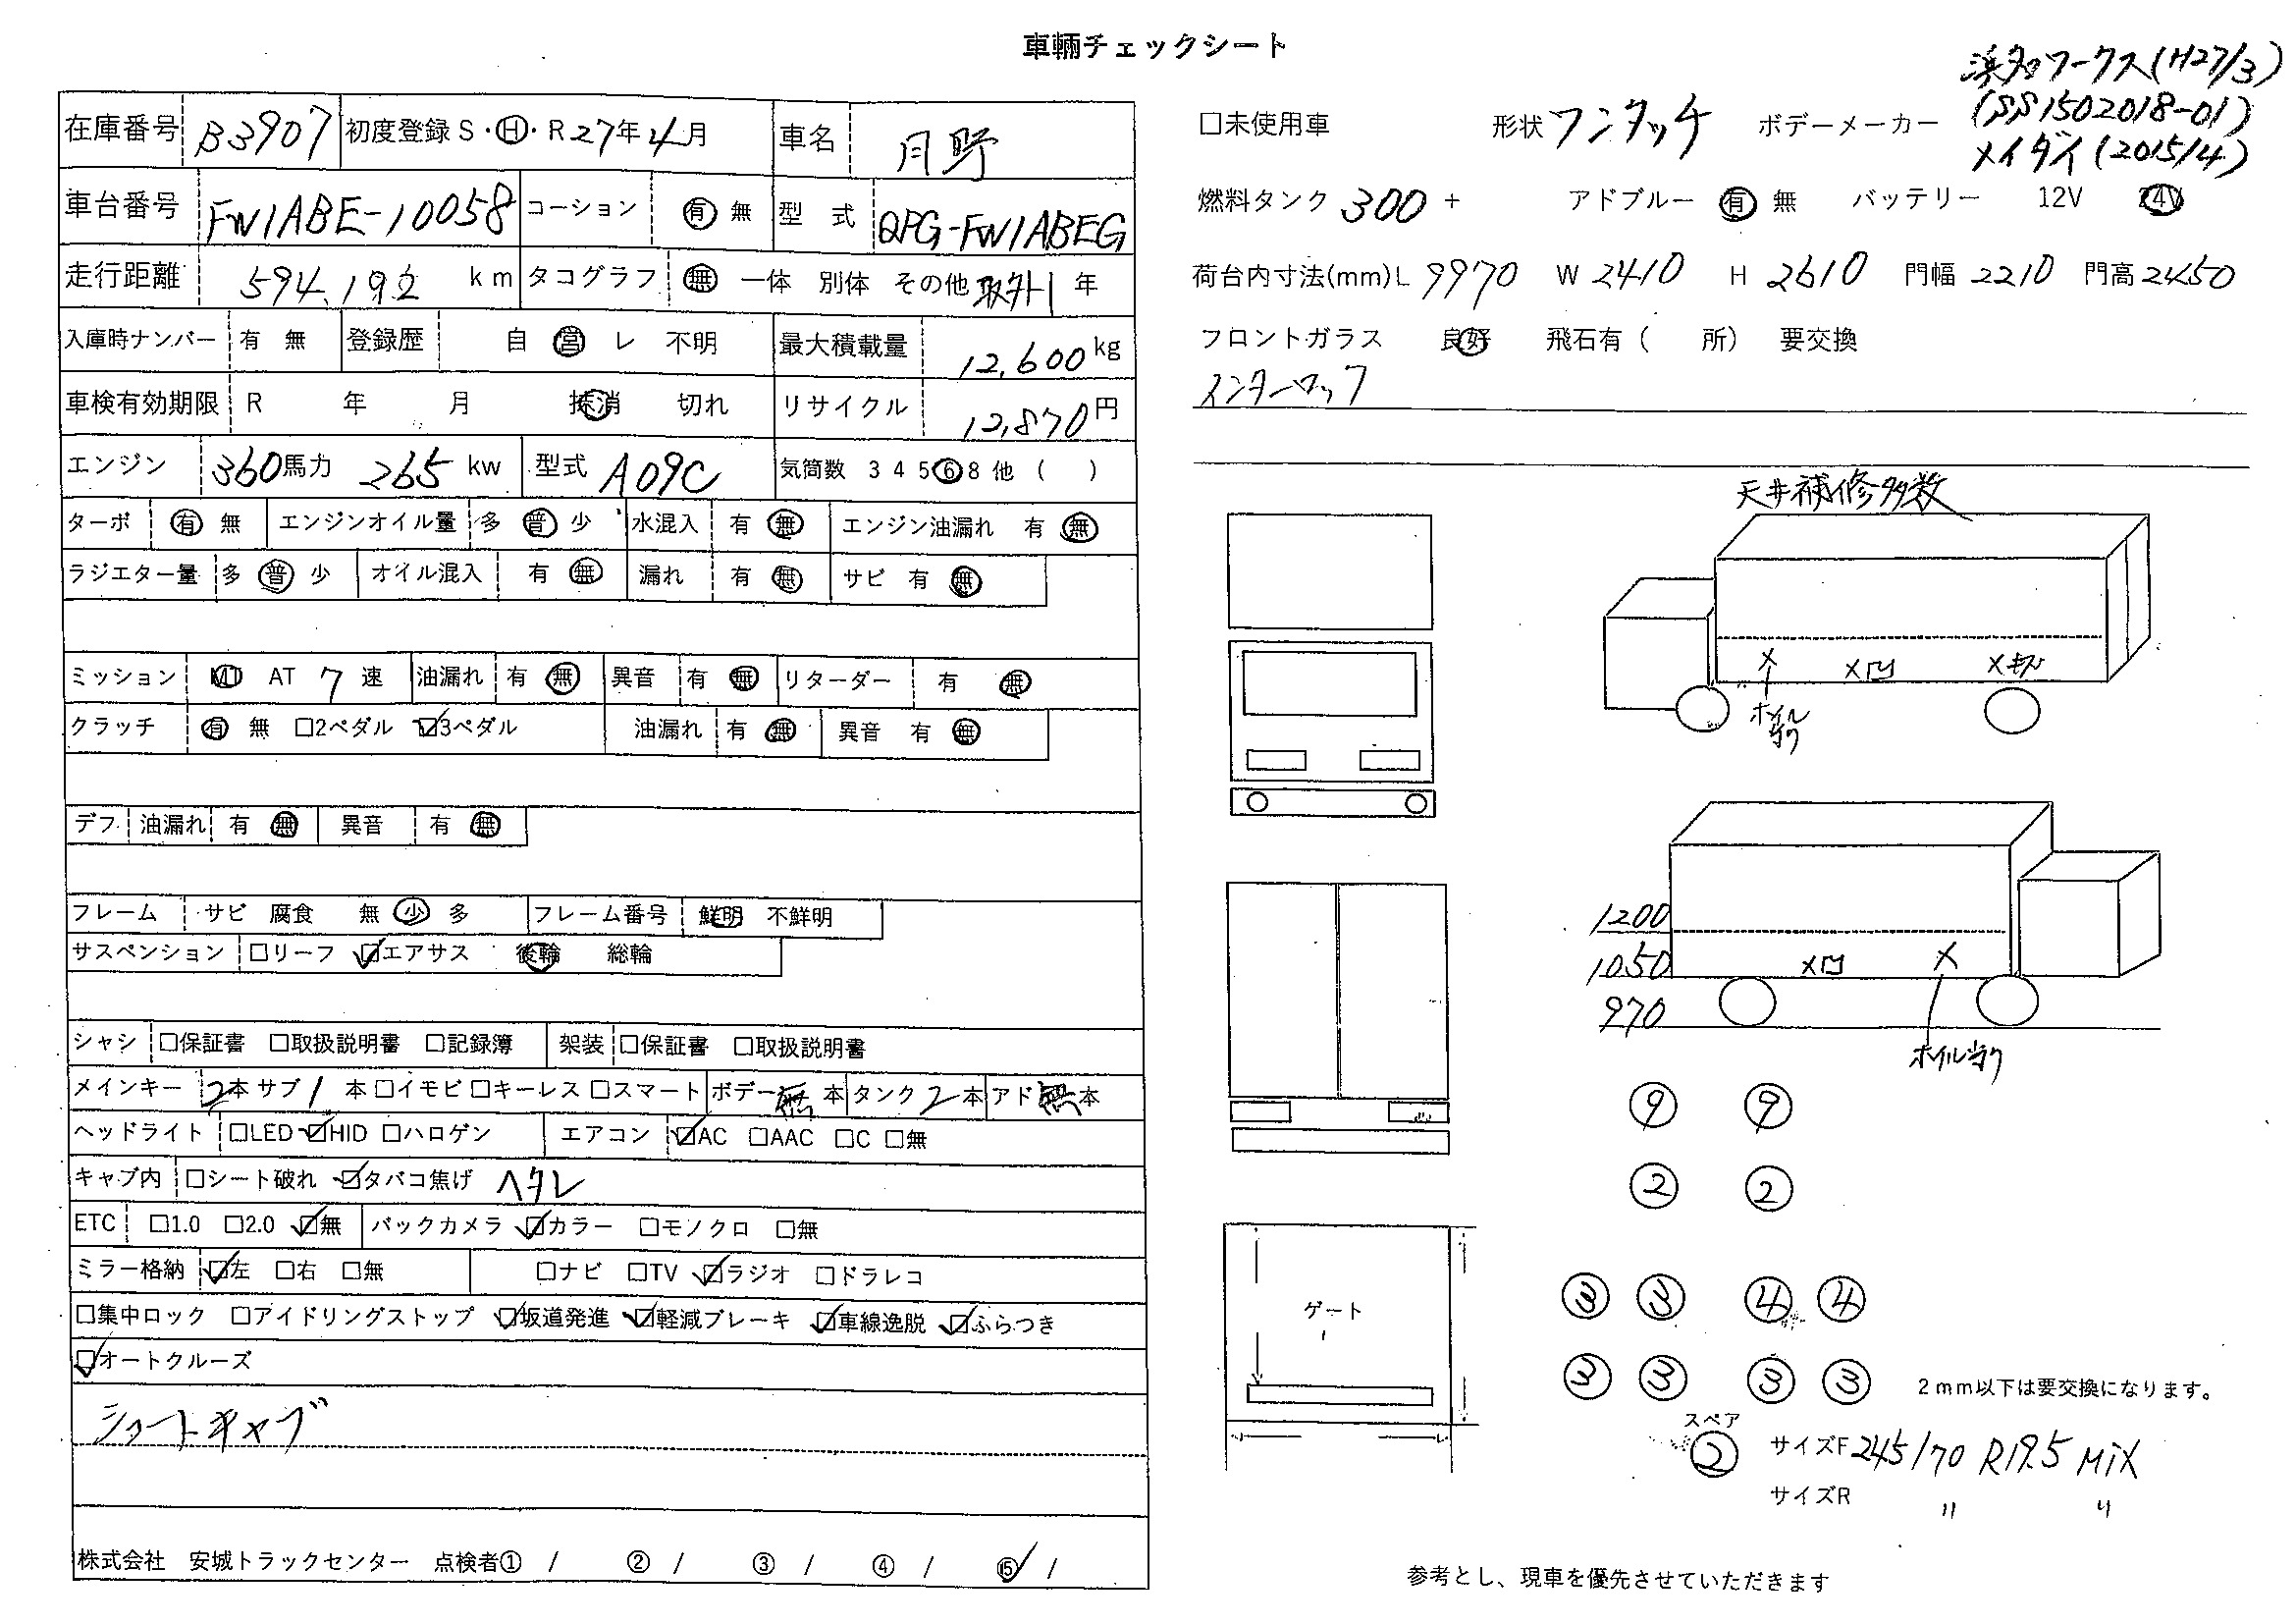 車輌チェックシート
在庫番号 B3907 初度登録 S・Ⓗ・R 27年 4月 車名 日野
車台番号 FW1ABE-10058 コーション 有 無 型 式 QPG-FW1ABEG
走行距離 594,192 km タコグラフ 無 一体 別体 その他 取外し 年
入庫時ナンバー 有 無 登録歴 自 営 レ 不明 最大積載量 12,600 kg
車検有効期限 R 年 月 抹消 切れ リサイクル 12,870円
エンジン 360馬力 265 kw 型式 A09C 気筒数 3 4 5 6 8 他 ( )
ターボ 有 無 エンジンオイル量 多 普 少 水混入 有 無 エンジン油漏れ 有 無
ラジエター量 多 普 少 オイル混入 有 無 漏れ 有 無 サビ 有 無
ミッション MT AT 7 速 油漏れ 有 無 異音 有 無 リターダー 有 無
クラッチ 有 無 □2ペダル ☑3ペダル 油漏れ 有 無 異音 有 無
デフ 油漏れ 有 無 異音 有 無
フレーム サビ 腐食 無 少 多 フレーム番号 鮮明 不鮮明
サスペンション □リーフ ☑エアサス 後輪 総輪
シャシ □保証書 □取扱説明書 □記録簿 架装 □保証書 □取扱説明書
メインキー 2本 サブ 1 本 □イモビ □キーレス □スマート ボデー 無 本 タンク 2 本 アド 無 本
ヘッドライト □LED ☑HID □ハロゲン エアコン ☑AC □AAC □C □無
キャブ内 □シート破れ ☑タバコ焦げ ヘタレ
ETC □1.0 □2.0 ☑無 バックカメラ ☑カラー □モノクロ □無
ミラー格納 ☑左 □右 □無 □ナビ □TV ☑ラジオ □ドラレコ
□集中ロック □アイドリングストップ ☑坂道発進 ☑軽減ブレーキ ☑車線逸脱 ☑ふらつき
☑オートクルーズ
ショートキャブ
株式会社 安城トラックセンター 点検者① / ② / ③ / ④ / ⑮ /
浜名ワークス(H27/3)
(SS1502018-01)
メイダイ(2015/4)
□未使用車 形状 ワンタッチ ボデーメーカー
燃料タンク 300 + アドブルー 有 無 バッテリー 12V 24V
荷台内寸法(mm) L 9970 W 2410 H 2610 門幅 2210 門高 2450
フロントガラス 良好 飛石有 ( 所) 要交換
インターロック
天井補修多数
× ×凹 ×キズ
ホイル
当り
1200
1050
970
×凹 ×
ホイル当り
⑨ ⑨
② ②
③ ③ ④ ④
③ ③ ③ ③
2mm以下は要交換になります。
ゲート
スペア
② サイズF 245/70 R19.5 MIX
サイズR 〃 〃
参考とし、現車を優先させていただきます